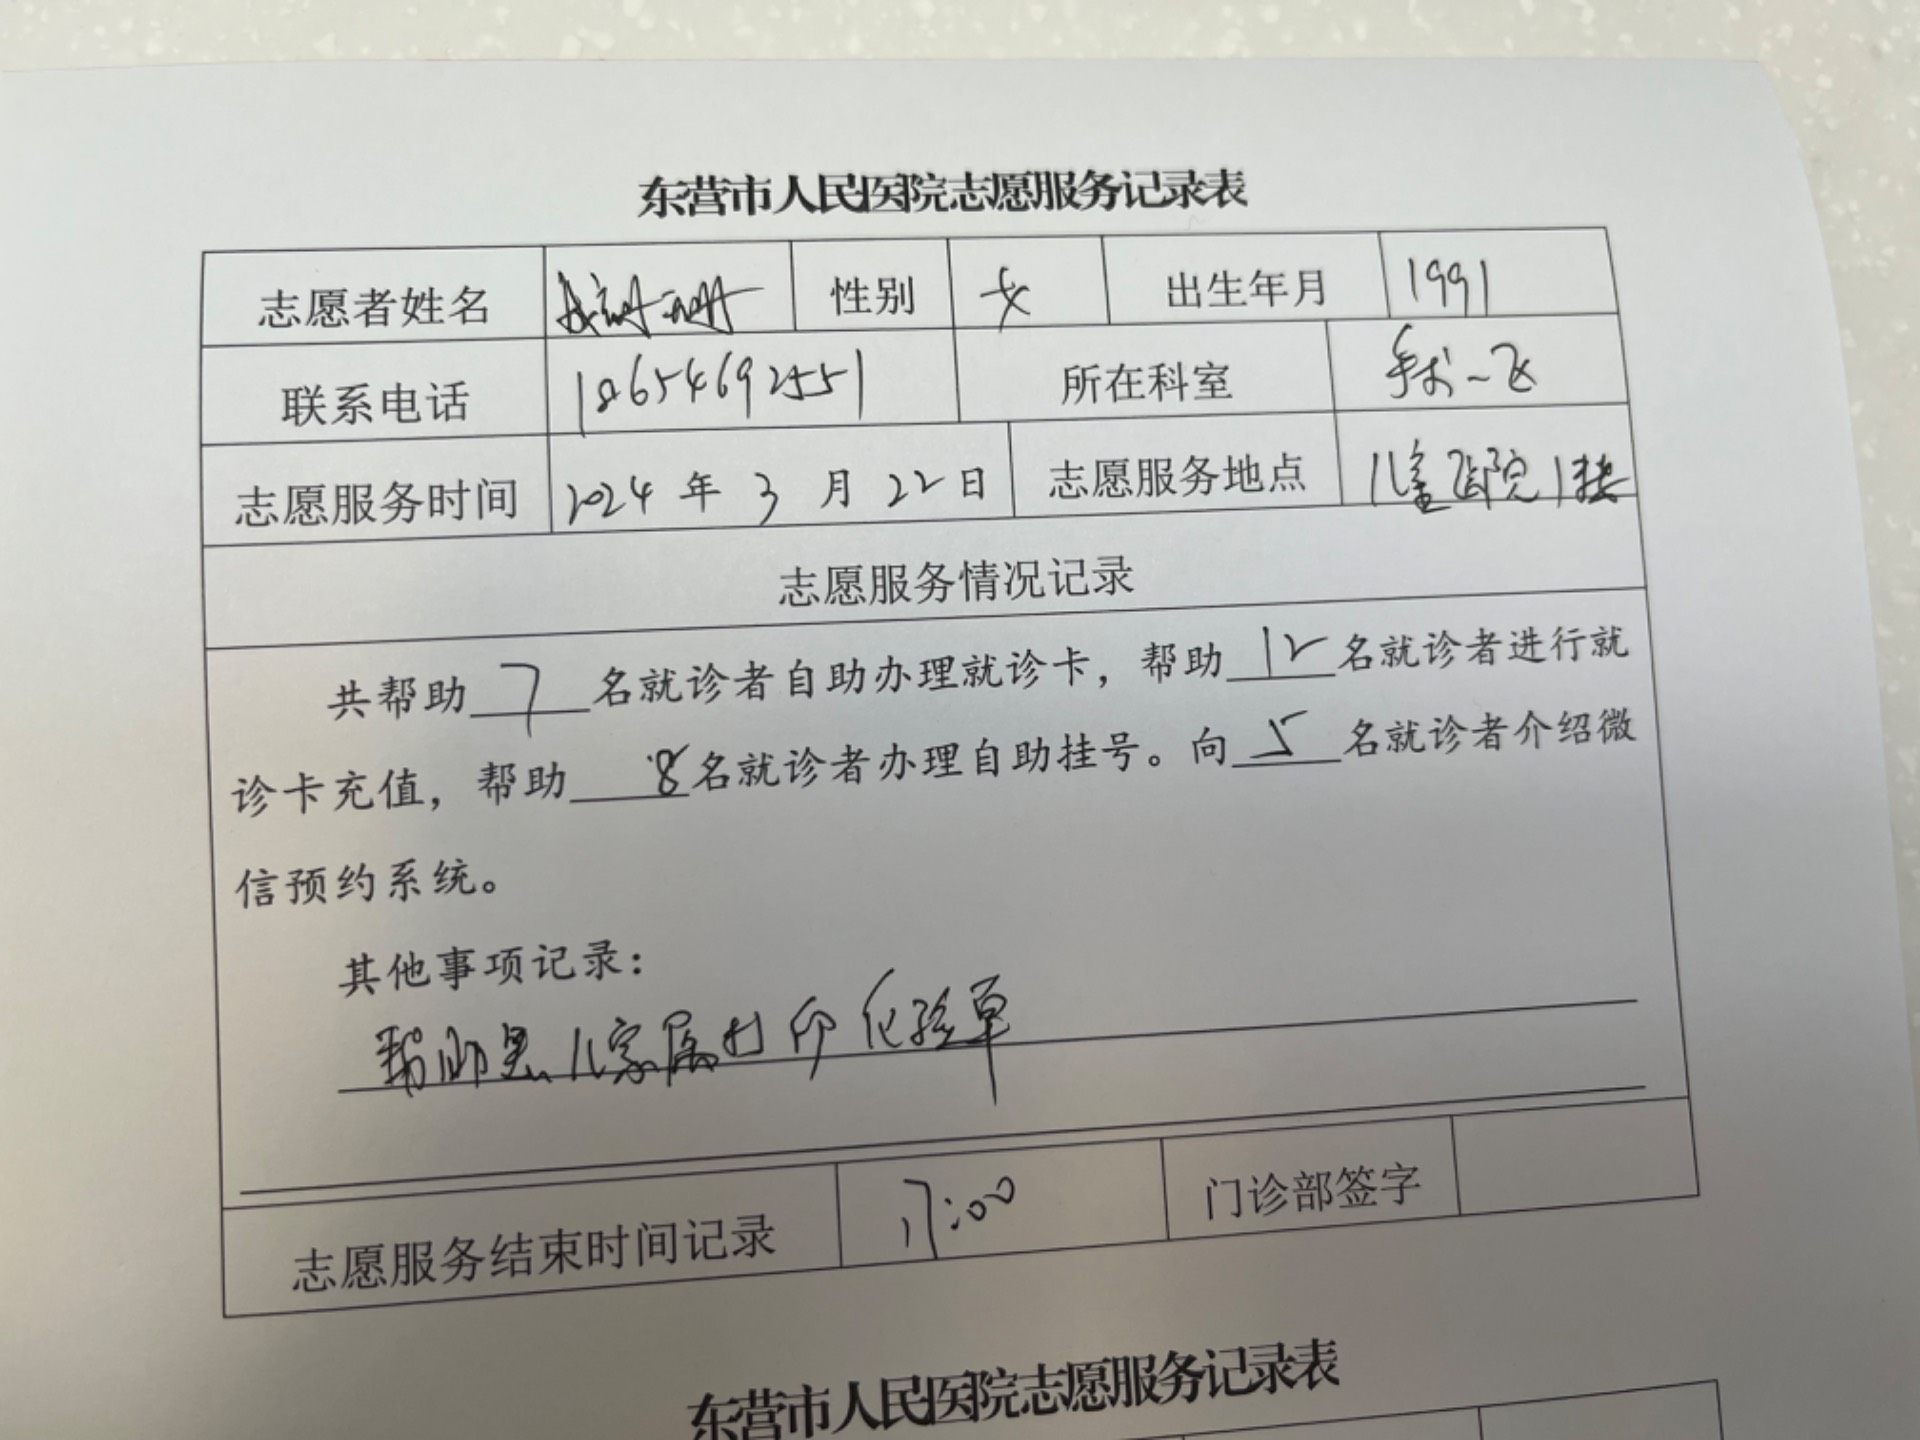 东营市人民医院志愿服务记录表
志愿者姓名 性别 女 出生年月 1991
联系电话 18654692551 所在科室 手术一区
志愿服务时间 2024年3月22日 志愿服务地点 儿童医院1楼
志愿服务情况记录
共帮助7名就诊者自助办理就诊卡，帮助12名就诊者进行就
诊卡充值，帮助8名就诊者办理自助挂号。向5名就诊者介绍微
信预约系统。
其他事项记录：
帮助患儿家属打印化验单
志愿服务结束时间记录 17:00 门诊部签字
东营市人民医院志愿服务记录表